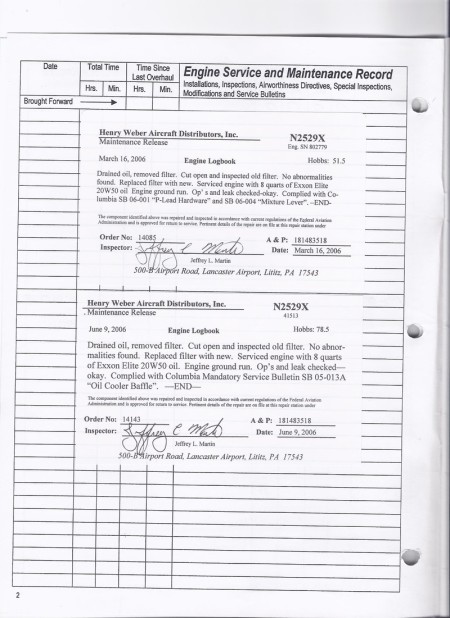 Date Total Time Time Since Last Overhaul Engine Service and Maintenance Record
Hrs. Min. Hrs. Min. Installations, Inspections, Airworthiness Directives, Special Inspections, Modifications and Service Bulletins
Brought Forward
Henry Weber Aircraft Distributors, Inc. N2529X
Maintenance Release Eng. SN 802779
March 16, 2006 Engine Logbook Hobbs: 51.5
Drained oil, removed filter. Cut open and inspected old filter. No abnormalities
found. Replaced filter with new. Serviced engine with 8 quarts of Exxon Elite
20W50 oil Engine ground run. Op' s and leak checked-okay. Complied with Co-
lumbia SB 06-001 "P-Lead Hardware" and SB 06-004 "Mixture Lever". –END-
The component identified above was repaired and inspected in accordance with current regulations of the Federal Aviation
Administration and is approved for return to service. Pertinent details of the repair are on file at this repair station under
Order No: 14085 A & P: 181483518
Inspector: Jeffrey L. Martin Date: March 16, 2006
Jeffrey L. Martin
500-B Airport Road, Lancaster Airport, Lititz, PA 17543
Henry Weber Aircraft Distributors, Inc. N2529X
Maintenance Release 41513
June 9, 2006 Engine Logbook Hobbs: 78.5
Drained oil, removed filter. Cut open and inspected old filter. No abnor-
malities found. Replaced filter with new. Serviced engine with 8 quarts
of Exxon Elite 20W50 oil. Engine ground run. Op's and leak checked—
okay. Complied with Columbia Mandatory Service Bulletin SB 05-013A
"Oil Cooler Baffle". —END—
The component identified above was repaired and inspected in accordance with current regulations of the Federal Aviation
Administration and is approved for return to service. Pertinent details of the repair are on file at this repair station under
Order No: 14143 A & P: 181483518
Inspector: Jeffrey L. Martin Date: June 9, 2006
Jeffrey L. Martin
500-B Airport Road, Lancaster Airport, Lititz, PA 17543
2